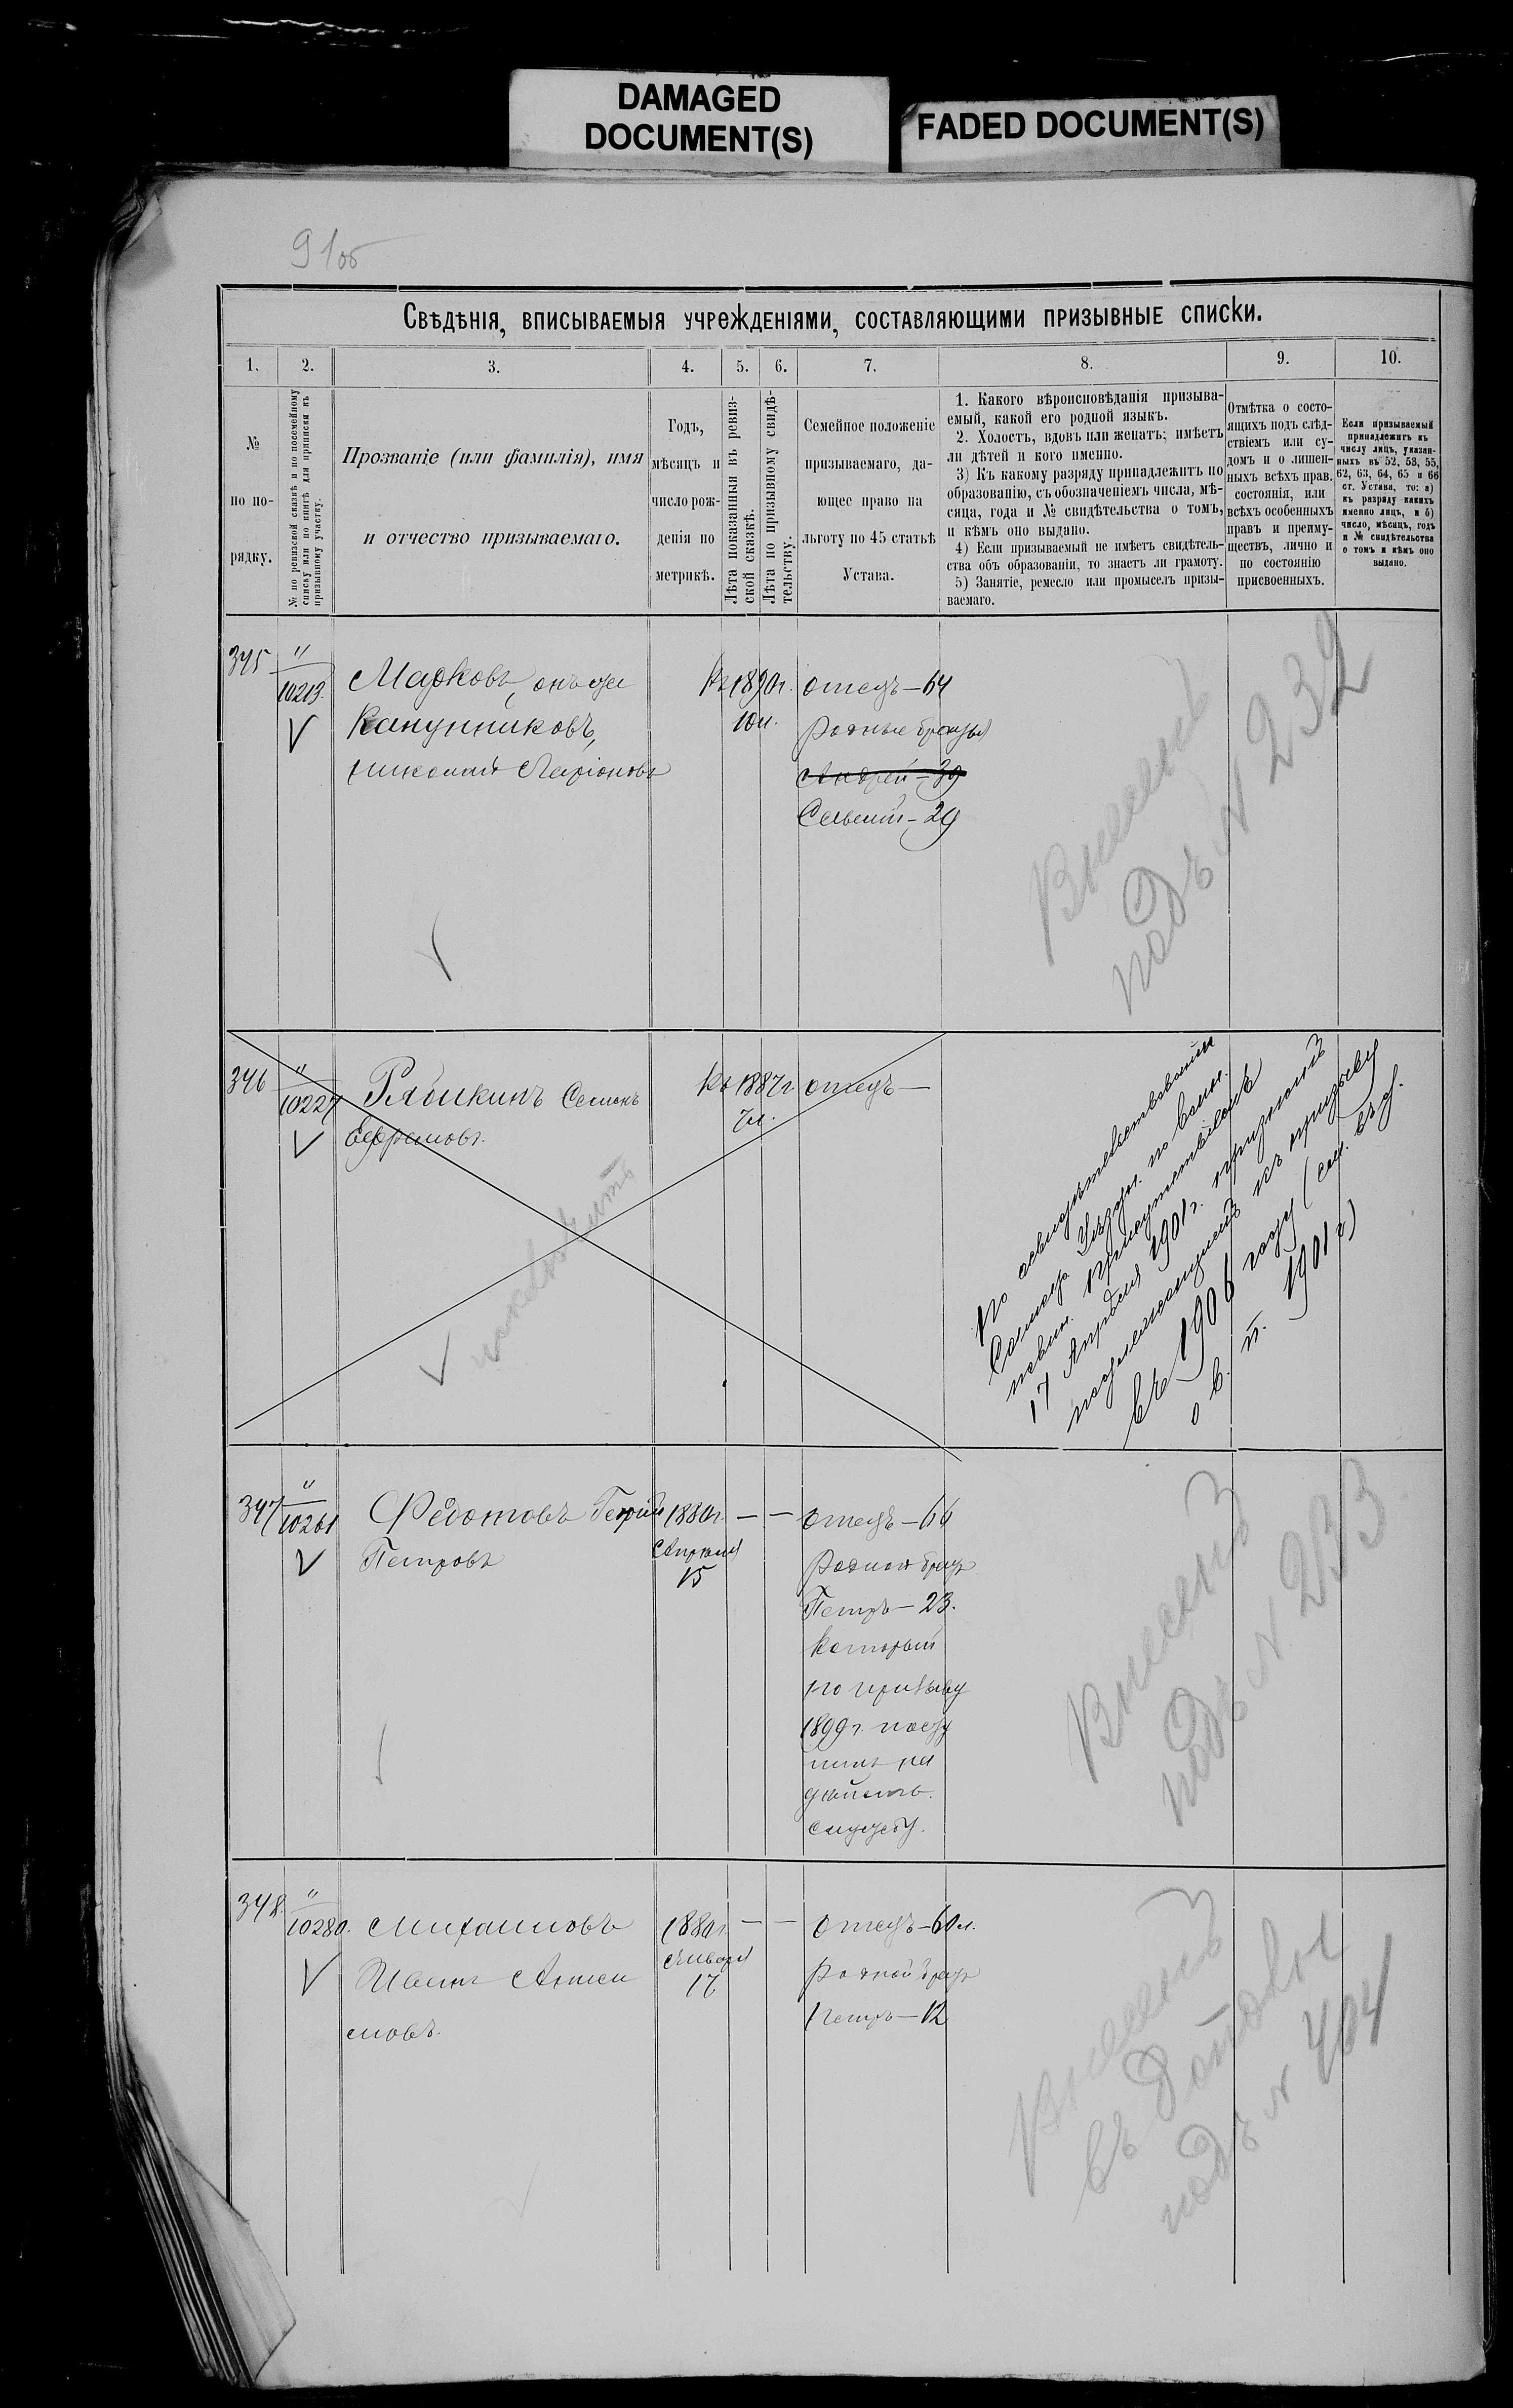 DAMAGED
DOCUMENT(S)
FADED DOCUMENT(S)
91об
Свѣдѣнія, вписываемыя учрежденіями, составляющими призывные списки.
1.
2.
3.
4.
5.
6.
7.
8.
9.
10.
№
по по-
рядку.
№ по ревизской сказкѣ и по посемейному
списку или по книгѣ для приписки къ
призывному участку.
Прозваніе (или фамилія), имя
и отчество призываемаго.
Годъ,
мѣсяцъ и
число рож-
денія по
метрикѣ.
Лѣта показанныя въ ревиз-
ской сказкѣ.
Лѣта по призывному свидѣ-
тельству.
Семейное положеніе
призываемаго, да-
ющее право на
льготу по 45 статьѣ
Устава.
1. Какого вѣроисповѣданія призыва-
емый, какой его родной языкъ.
2. Холостъ, вдовъ или женатъ; имѣетъ
ли дѣтей и кого именно.
3) Къ какому разряду принадлежитъ по
образованію, съ обозначеніемъ числа, мѣ-
сяца, года и № свидѣтельства о томъ,
и кѣмъ оно выдано.
4) Если призываемый не имѣетъ свидѣтель-
ства объ образованіи, то знаетъ ли грамоту.
5) Занятіе, ремесло или промыселъ призы-
ваемаго.
Отмѣтка о состо-
ящихъ подъ слѣд-
ствіемъ или су-
домъ и о лишен-
ныхъ всѣхъ прав.
состоянія, или
всѣхъ особенныхъ
правъ и преиму-
ществъ, лично и
по состоянію
присвоенныхъ.
Если призываемый
принадлежитъ къ
числу лицъ, указан-
ныхъ въ 52, 53, 55,
62, 63, 64, 65 и 66
ст. Устава, то: а)
къ разряду какихъ
именно лицъ, и б)
число, мѣсяцъ, годъ
и № свидѣтельства
о томъ и кѣмъ оно
выдано.
345
"
10213.
Марковъ, онъ же
Канунниковъ,
Ларіоновъ
Къ 1890г.
10л.
отецъ – 64
Родные братья
Андрей – 39
Савелій – 29
Внесенъ
подъ N 232
346
"
10227
Рябикинъ Семенъ
Ефремовъ.
Къ 1887г
7л.
отецъ —
По освидѣтельствованіи
Уѣздн. по воин.
повин. присутствіемъ
17 Апрѣля 1901г. признанъ
подлежащимъ къ призыву
въ 1901 году
о в. п. 1901г)
347
"
10261
Федотовъ
Петровъ
1880г.
Апрѣля
15
— —
отецъ – 66
Родной братъ
Петръ – 23.
который
по призыву
1899г. посту
пилъ на
дѣйств.
службу.
Внесенъ
подъ N 233
348.
"
10280.
Михайловъ
Иванъ Аниси
мовъ.
1880г.
Января
17
— —
отецъ – 60л.
Родной братъ
Петръ – 12
Внесенъ
въ
подъ N 404